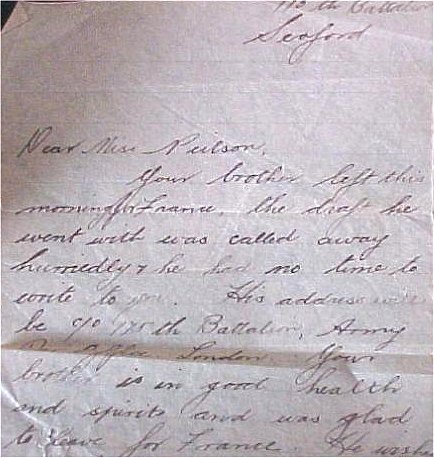 th Battalion
Seaford
Dear Miss Neilson,
Your brother left this
morning for France, the draft he
went with was called away
hurriedly & he had no time to
write to you. His address will
be c/o th Battalion, Army
London. Your
brother is in good health
and spirits and was glad
to leave for France. He wishe